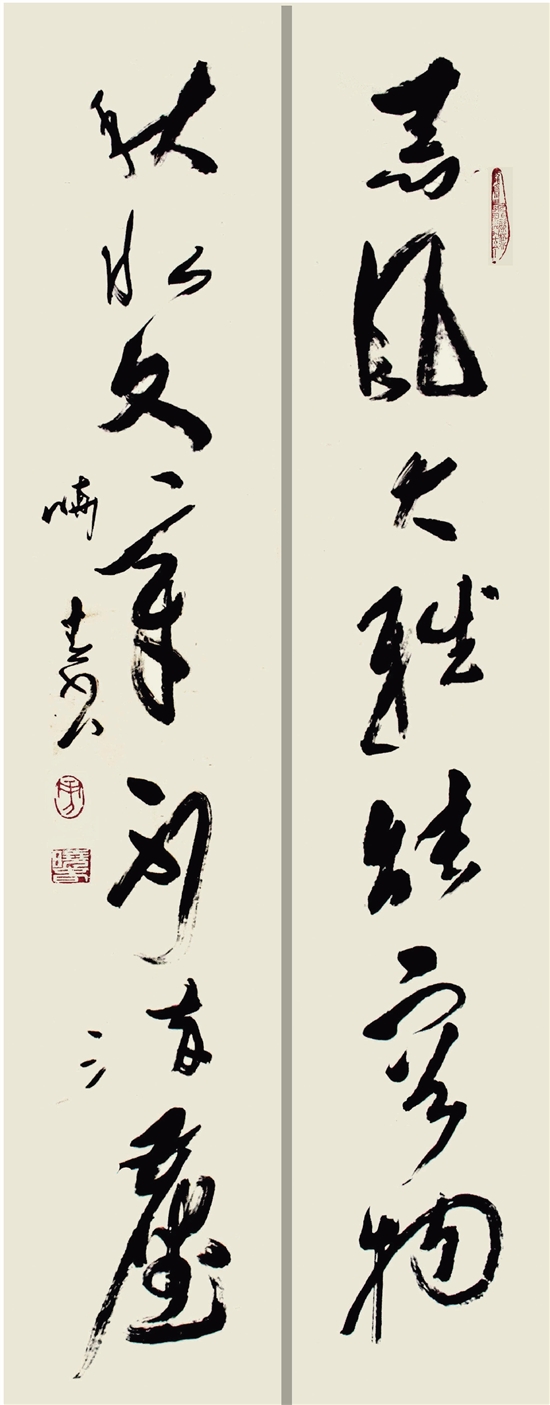 春风大雅能容物
秋水文章不染塵